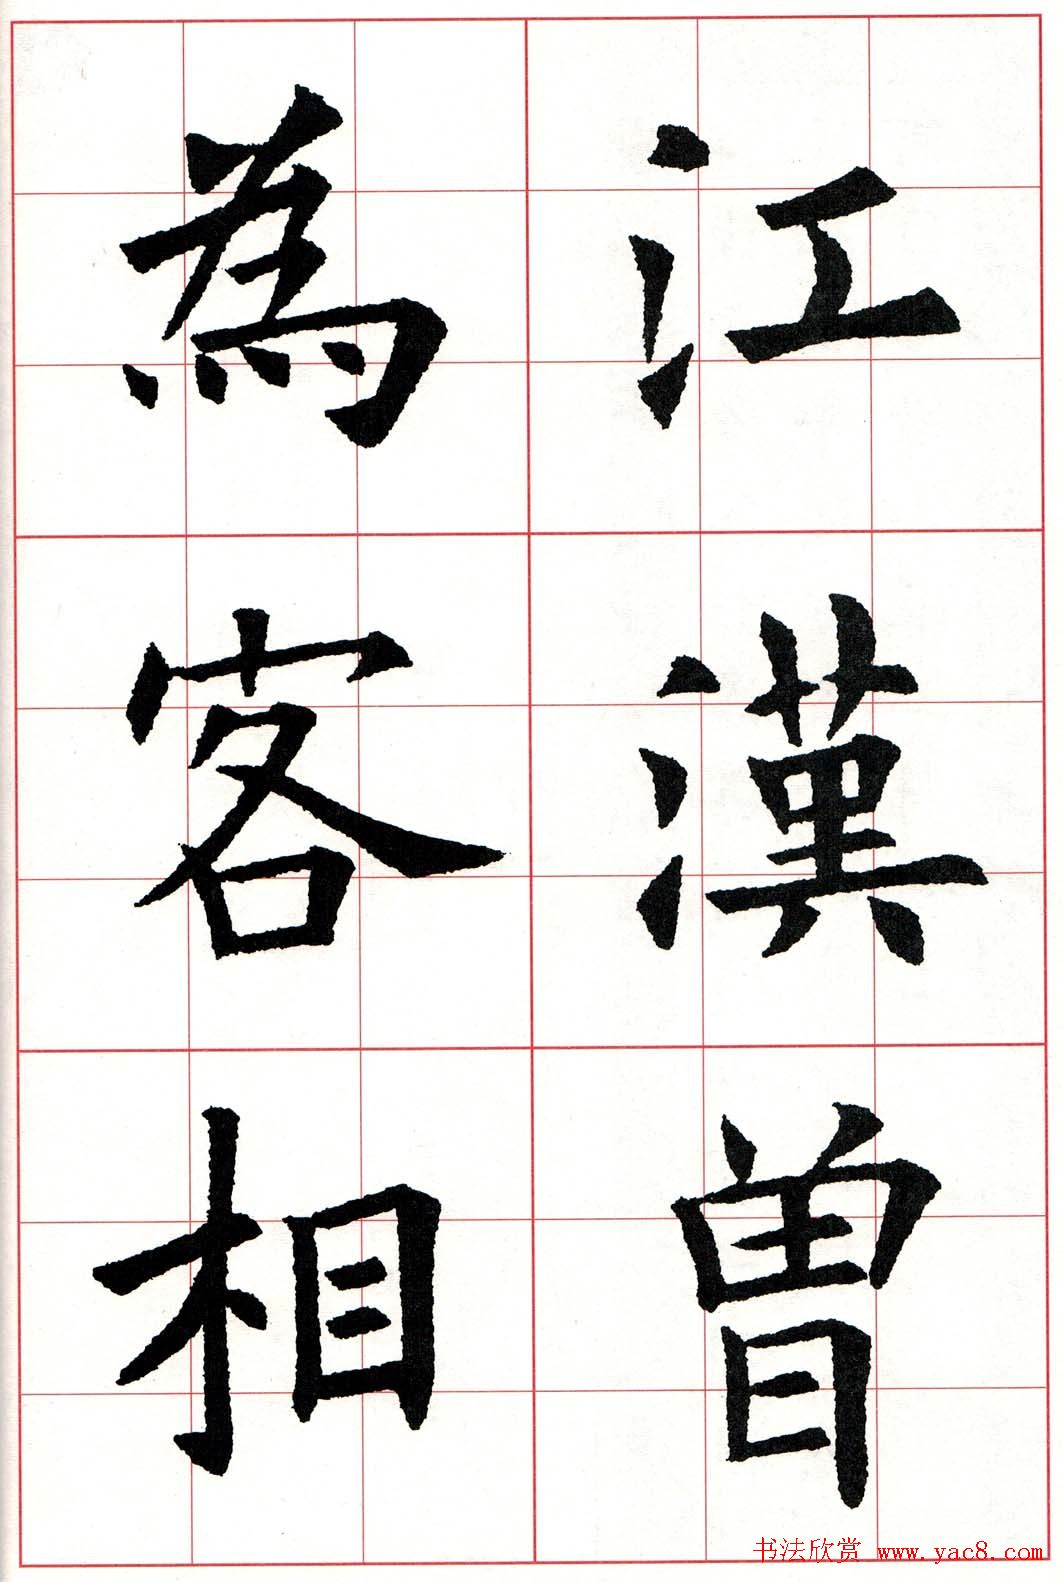 江漢曾
為客相
书法欣赏 www.yac8.com